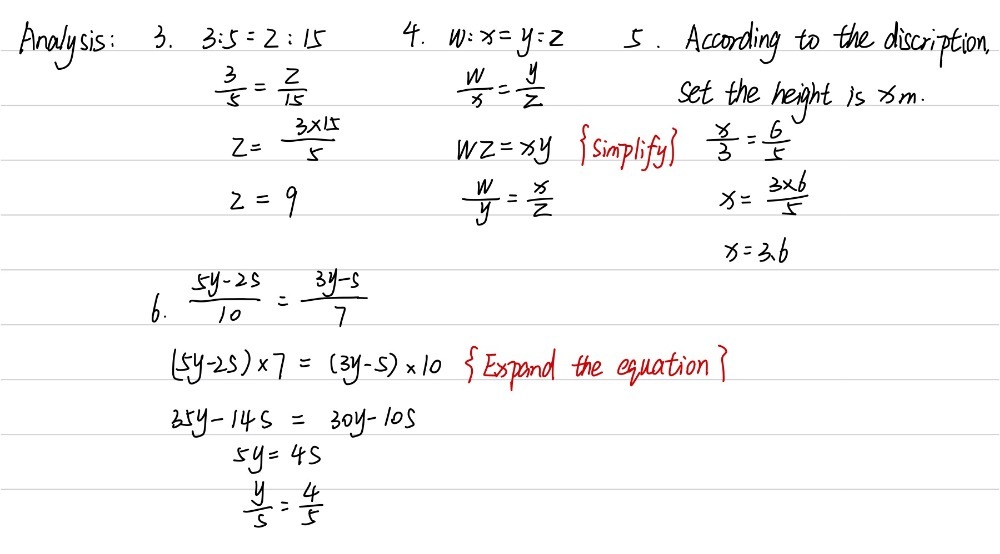 Analysis: 3. 3:5 = z:15
3/5 = z/15
z = 3×15/5
z = 9
4. w:x = y:z
w/x = y/z
wz = xy {Simplify}
w/y = x/z
5. According to the discription,
set the height is x m.
x/3 = 6/5
x = 3×6/5
x = 3.6
6. 5y-2s/10 = 3y-s/7
(5y-2s)×7 = (3y-s)×10 {Expand the equation}
35y-14s = 30y-10s
5y = 4s
y/s = 4/5